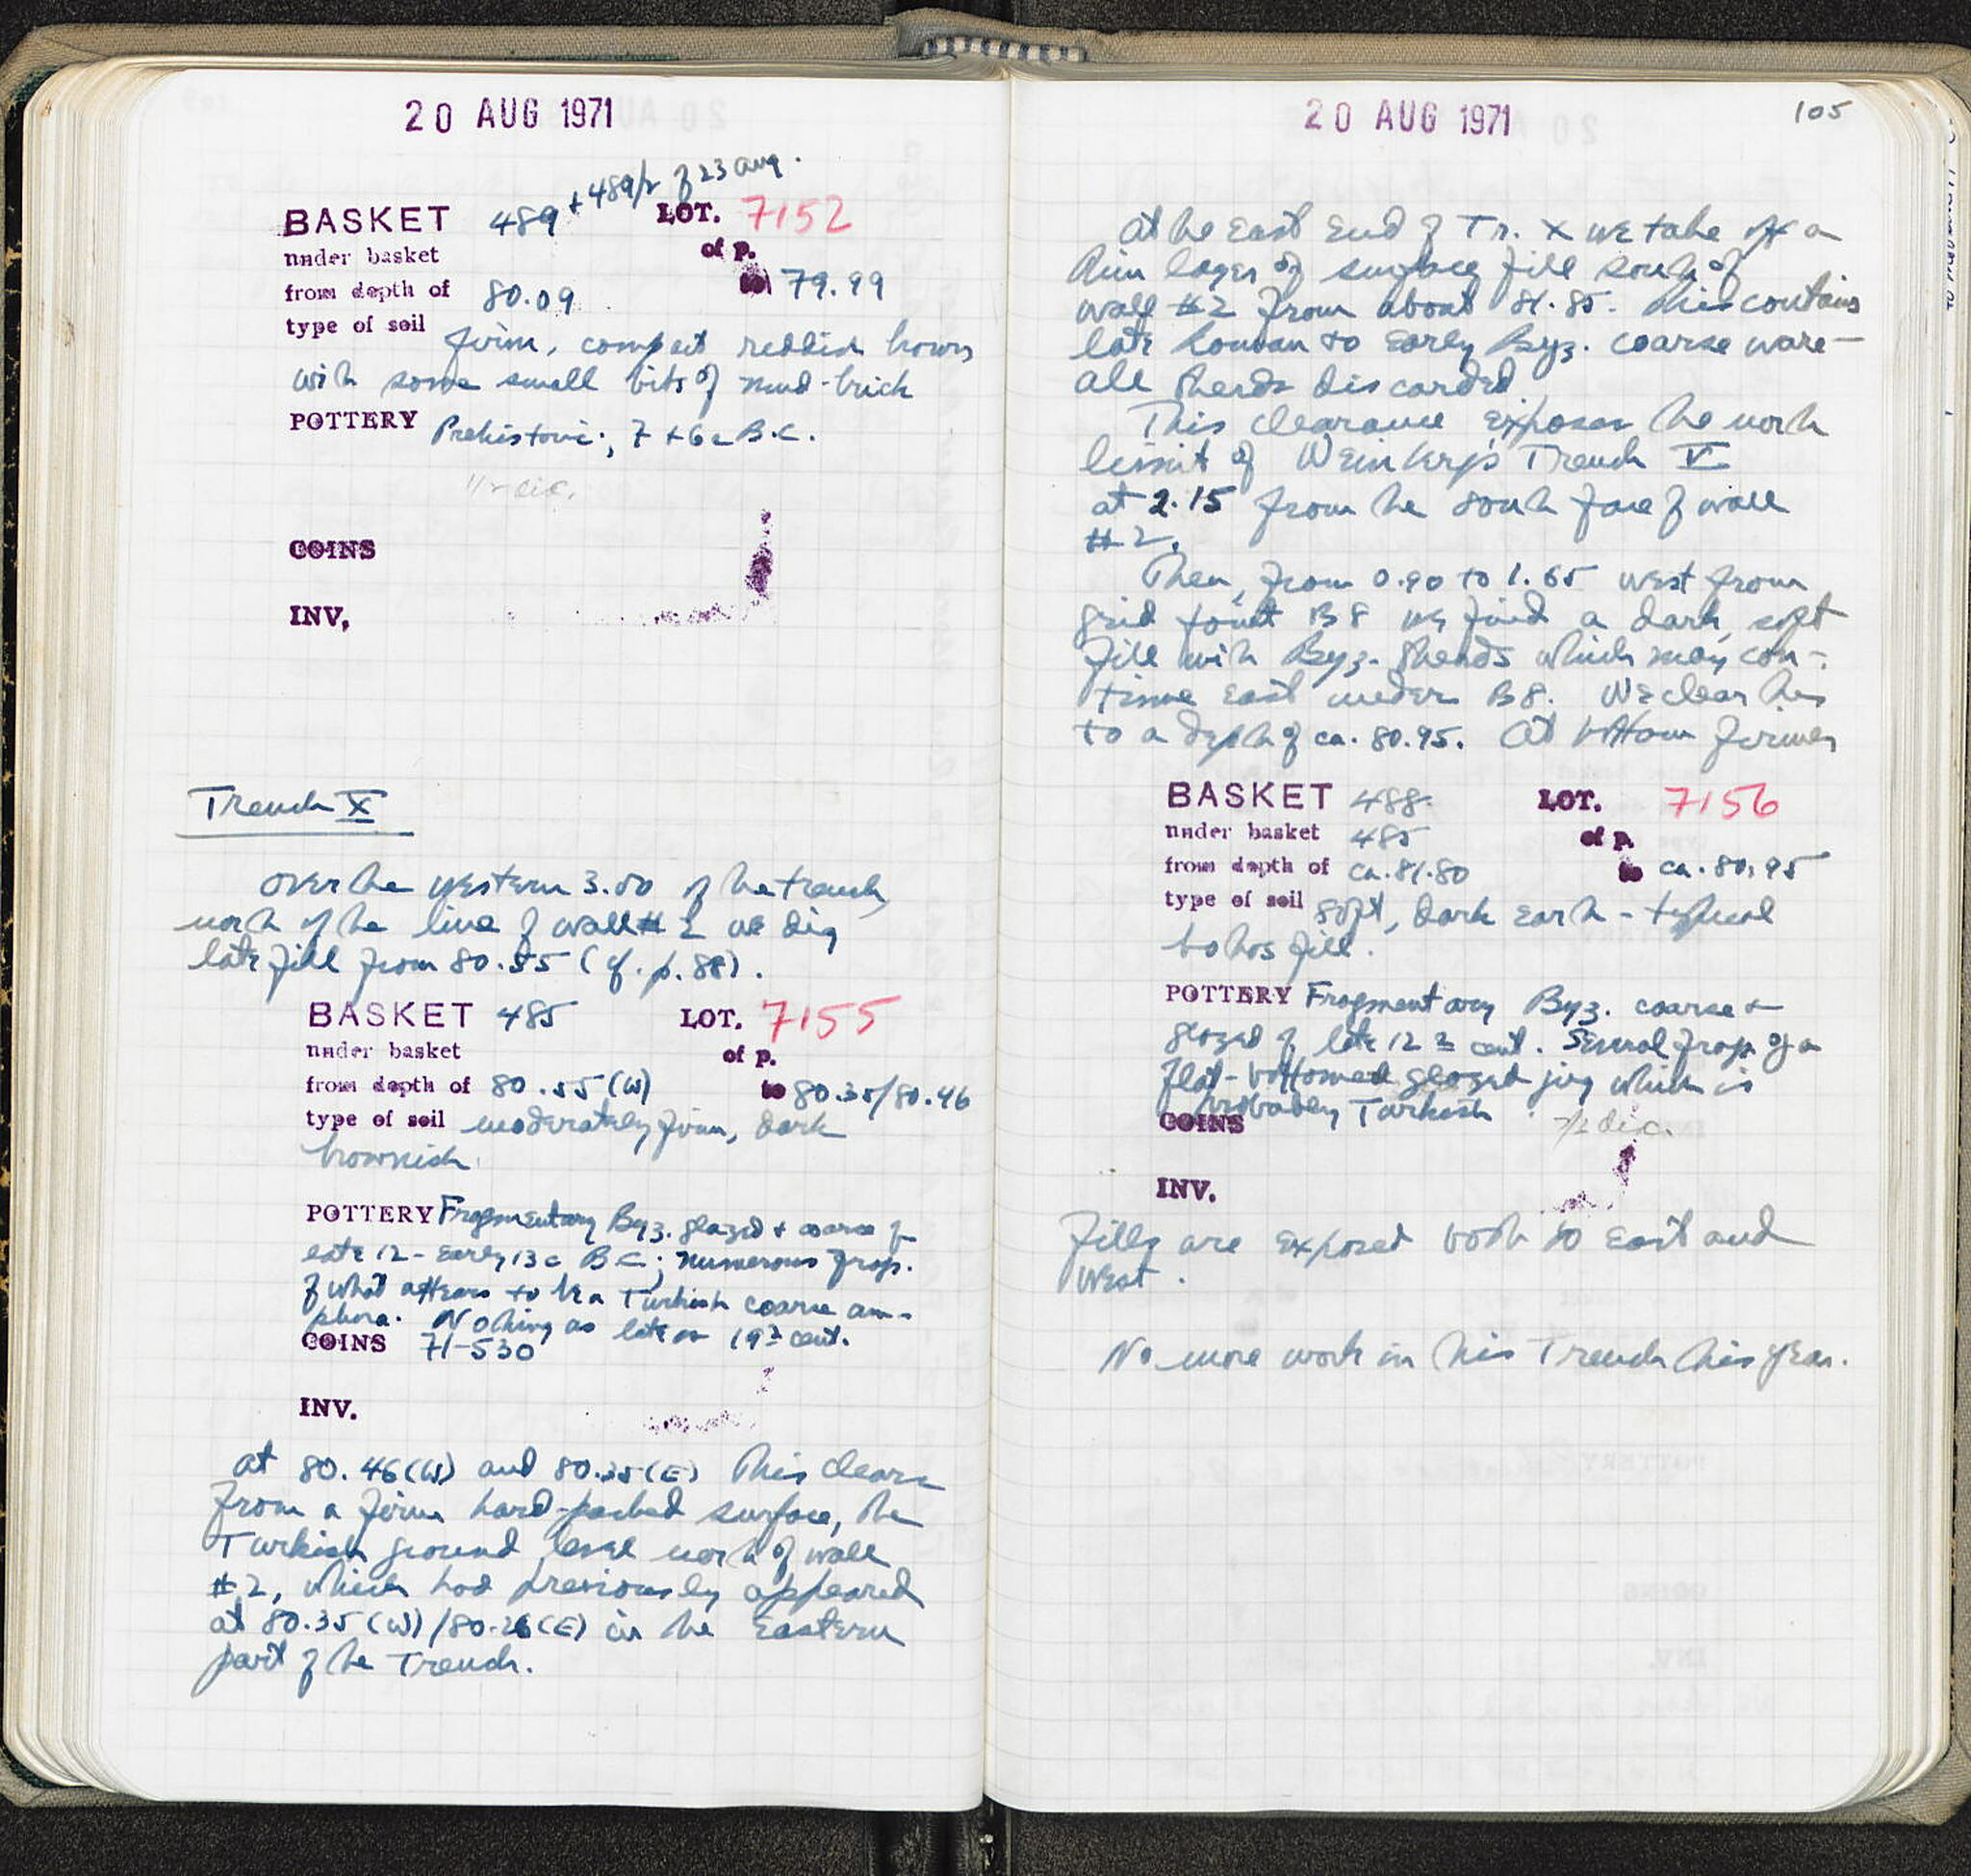 20 AUG 1971
+ 489/2 of 23 aug.
BASKET 489 LOT. 7152
under basket of p.
from depth of 80.09 to 79.99
type of soil
firm, compact reddish brown
with some small bits of mud-brick
POTTERY Prehistoric; 7 + 6c B.C.
COINS
INV.
Trench X
Over the western 3.00 of the trench,
north of the line of wall # 2 we dig
late fill from 80.55 (cf. p. 88).
BASKET 485 LOT. 7155
under basket of p.
from depth of 80.55 (W) to 80.35/80.46
type of soil moderately firm, dark
brownish
POTTERY Fragmentary Byz. glazed + coarse of
late 12 - early 13c B C; numerous frags.
of what appears to be a Turkish coarse am-
phora. Nothing as late as 19th cent.
COINS 71-530
INV.
at 80.46 (W) and 80.35 (E) This clears
from a firm hard-packed surface, the
Turkish ground level north of wall
#2, which had previously appeared
at 80.35 (W) /80.26 (E) in the Eastern
part of the Trench.
20 AUG 1971 105
At the East End of Tr. X we take off a
thin layer of surface fill south of
wall #2 from about 81.85. This contains
late Roman to Early Byz. coarse ware —
all sherds discarded
This clearance exposes the north
limit of Weinberg's Trench V
at 2.15 from the south face of wall
#2.
Then, from 0.90 to 1.65 west from
grid point B8 we find a dark, soft
fill with Byz. sherds which may con-
tinue east under B8. We clear this
to a depth of ca. 80.95. At bottom firmer
BASKET 488 LOT. 7156
under basket 485 of p.
from depth of ca. 81.80 to ca. 80.95
type of soil soft, dark earth - typical
bothros fill.
POTTERY Fragmentary Byz. coarse +
glazed of late 12th cent. Several frags of a
flat-bottomed glazed jug which is
probably Turkish
COINS 7/2 dic.
INV.
fills are exposed both to East and
West.
No more work in this Trench this year.